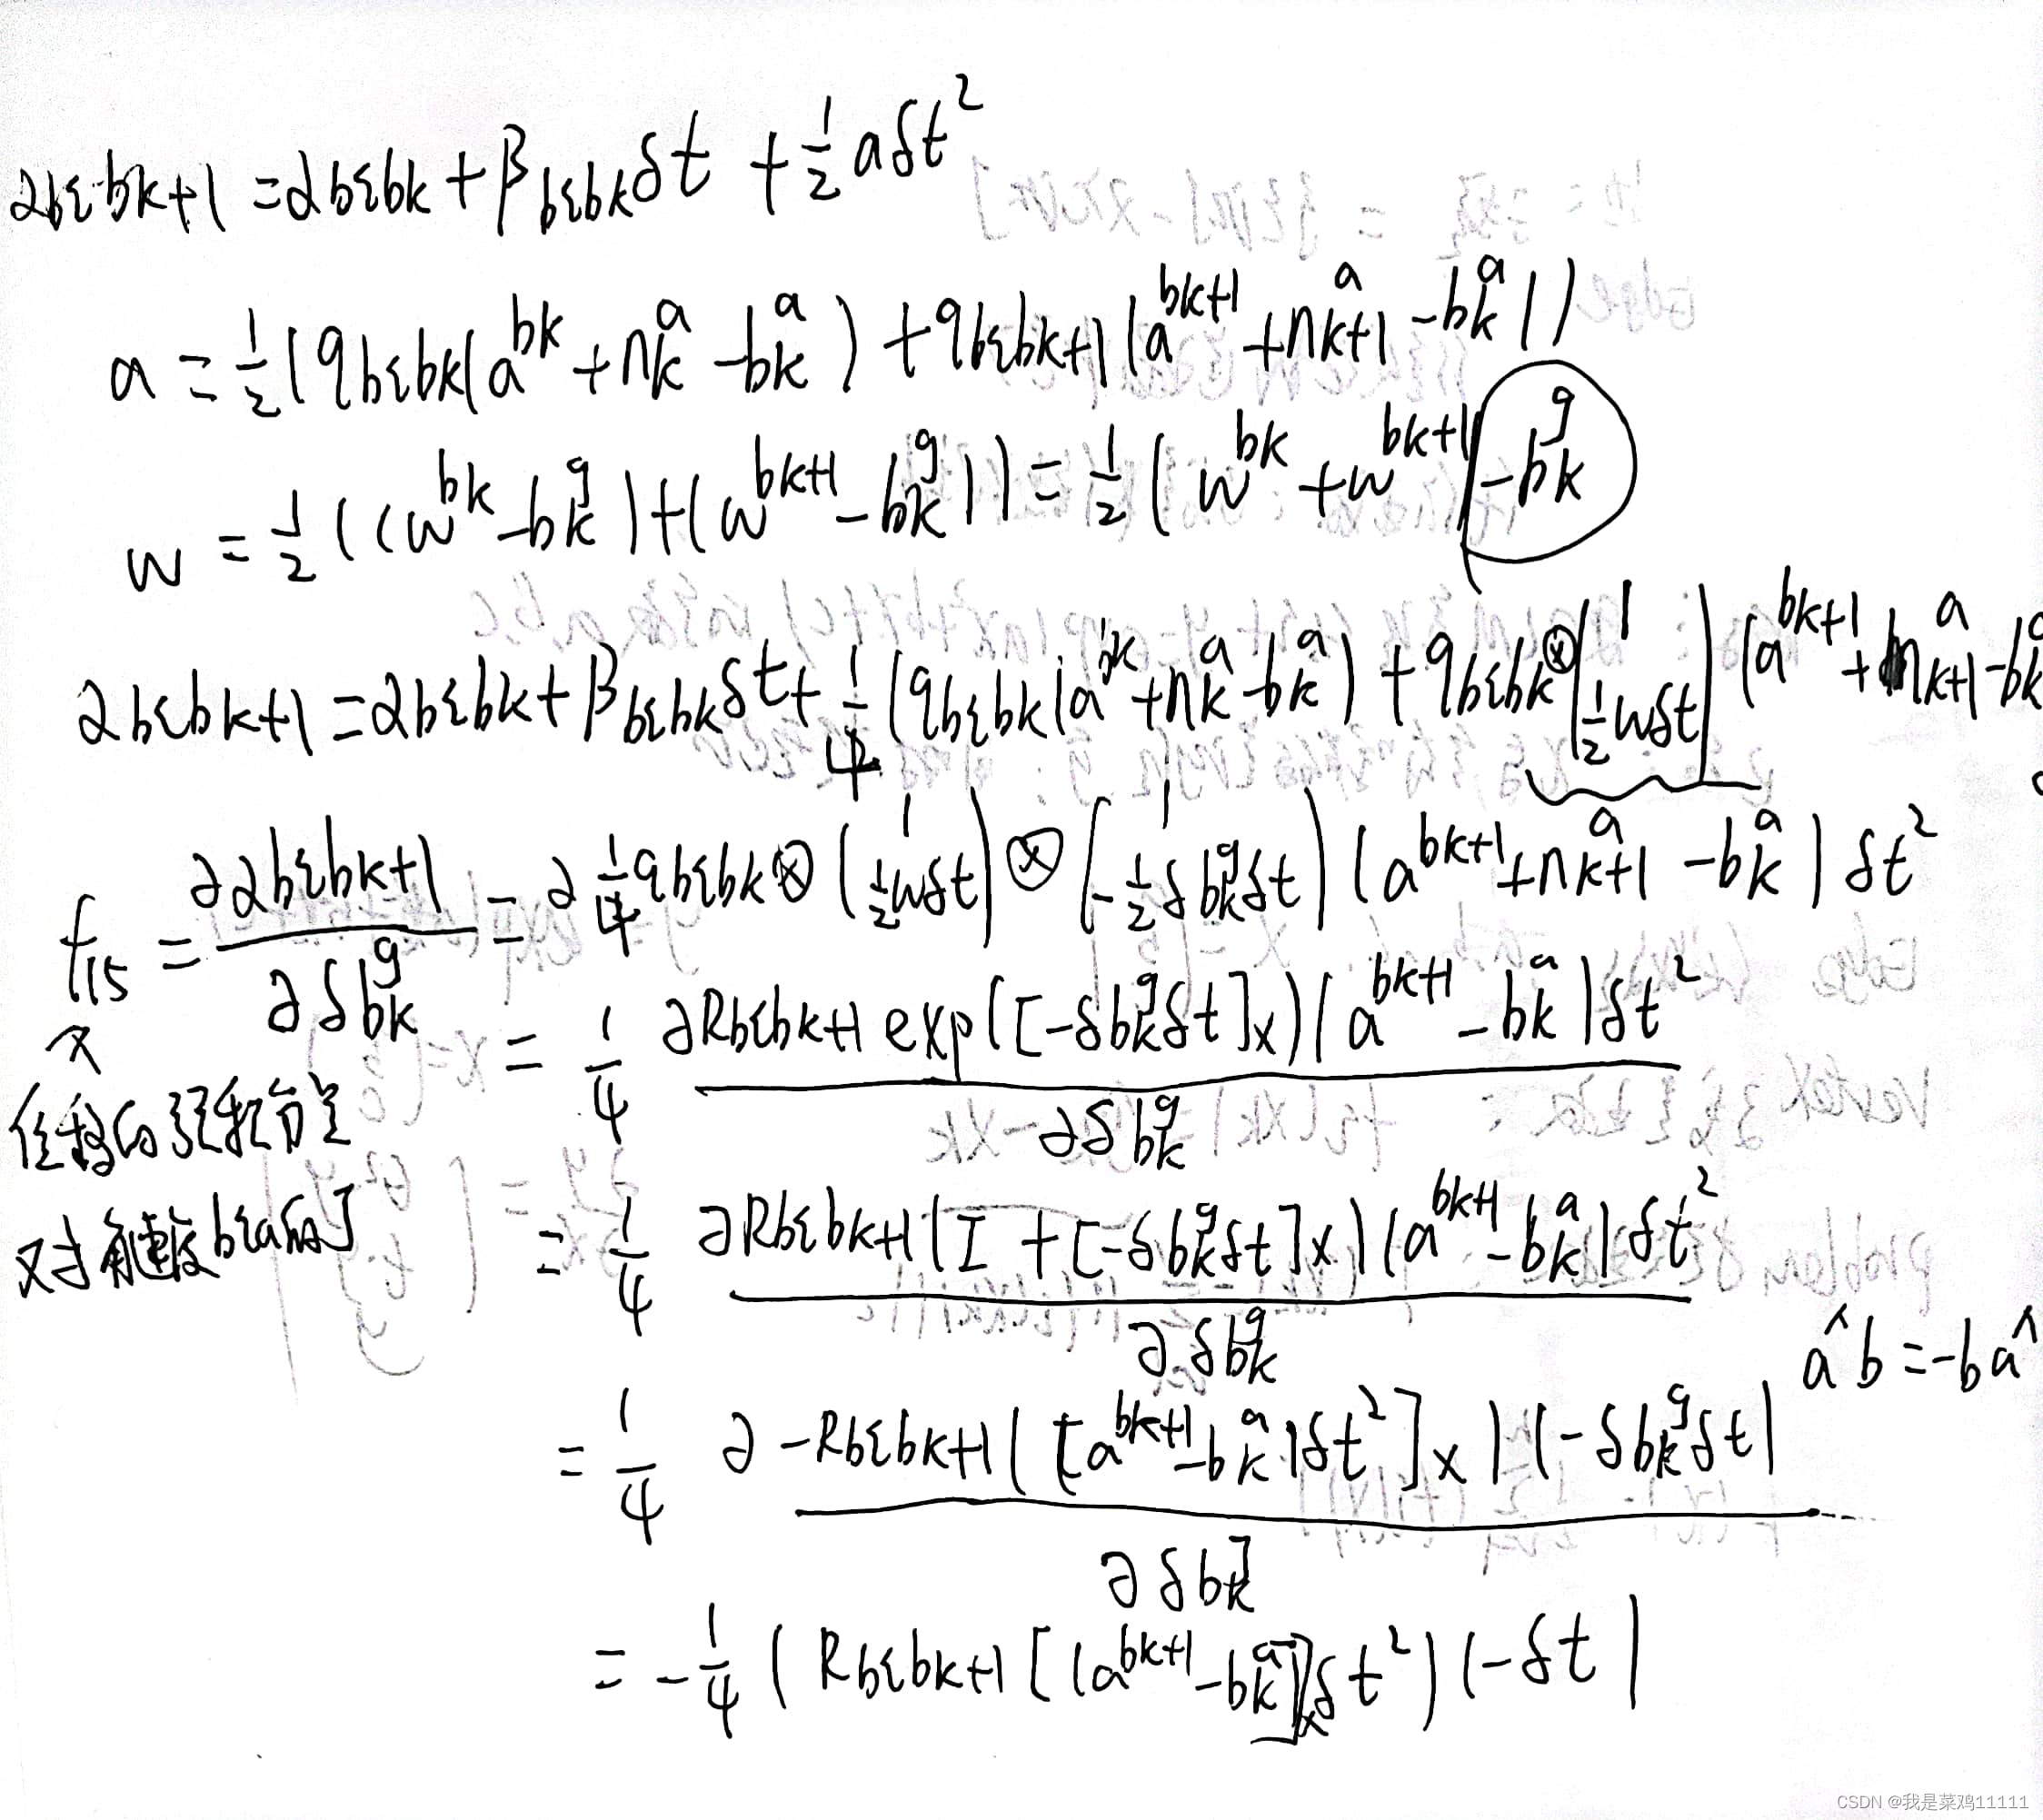 αbibk+1 = αbibk + βbibkδt + 1/2 aδt²
a = 1/2 (qbibk(a^bk + nk^a − bk^a) + qbibk+1(a^bk+1 + nk+1^a − bk^a))
w = 1/2 ((w^bk − bk^g) + (w^bk+1 − bk^g)) = 1/2 (w^bk + w^bk+1) − bk^g
αbibk+1 = αbibk + βbibkδt + 1/4 (qbibk(a^bk + nk^a − bk^a) + qbibk ⊗ (1 1/2 wδt) (a^bk+1 + nk+1^a − bk^a
f15 = ∂αbibk+1 / ∂δbk^g = ∂ 1/4 qbibk ⊗ (1 1/2 wδt) ⊗ [1 −1/2 δbk^gδt) (a^bk+1 + nk+1^a − bk^a) δt²
= 1/4 ∂Rbibk+1 exp([−δbk^gδt]x)(a^bk+1 − bk^a)δt² / ∂δbk^g
位移的预积分量
对角速度bias的
= 1/4 ∂Rbibk+1(I + [−δbk^gδt]x)(a^bk+1 − bk^a)δt² / ∂δbk^g
a^b = −ba^
= 1/4 ∂ −Rbibk+1([a^bk+1 − bk^a)δt²]x)(−δbk^gδt) / ∂δbk^g
= −1/4 (Rbibk+1[(a^bk+1 − bk^a)]xδt²)(−δt)
CSDN @我是菜鸡11111